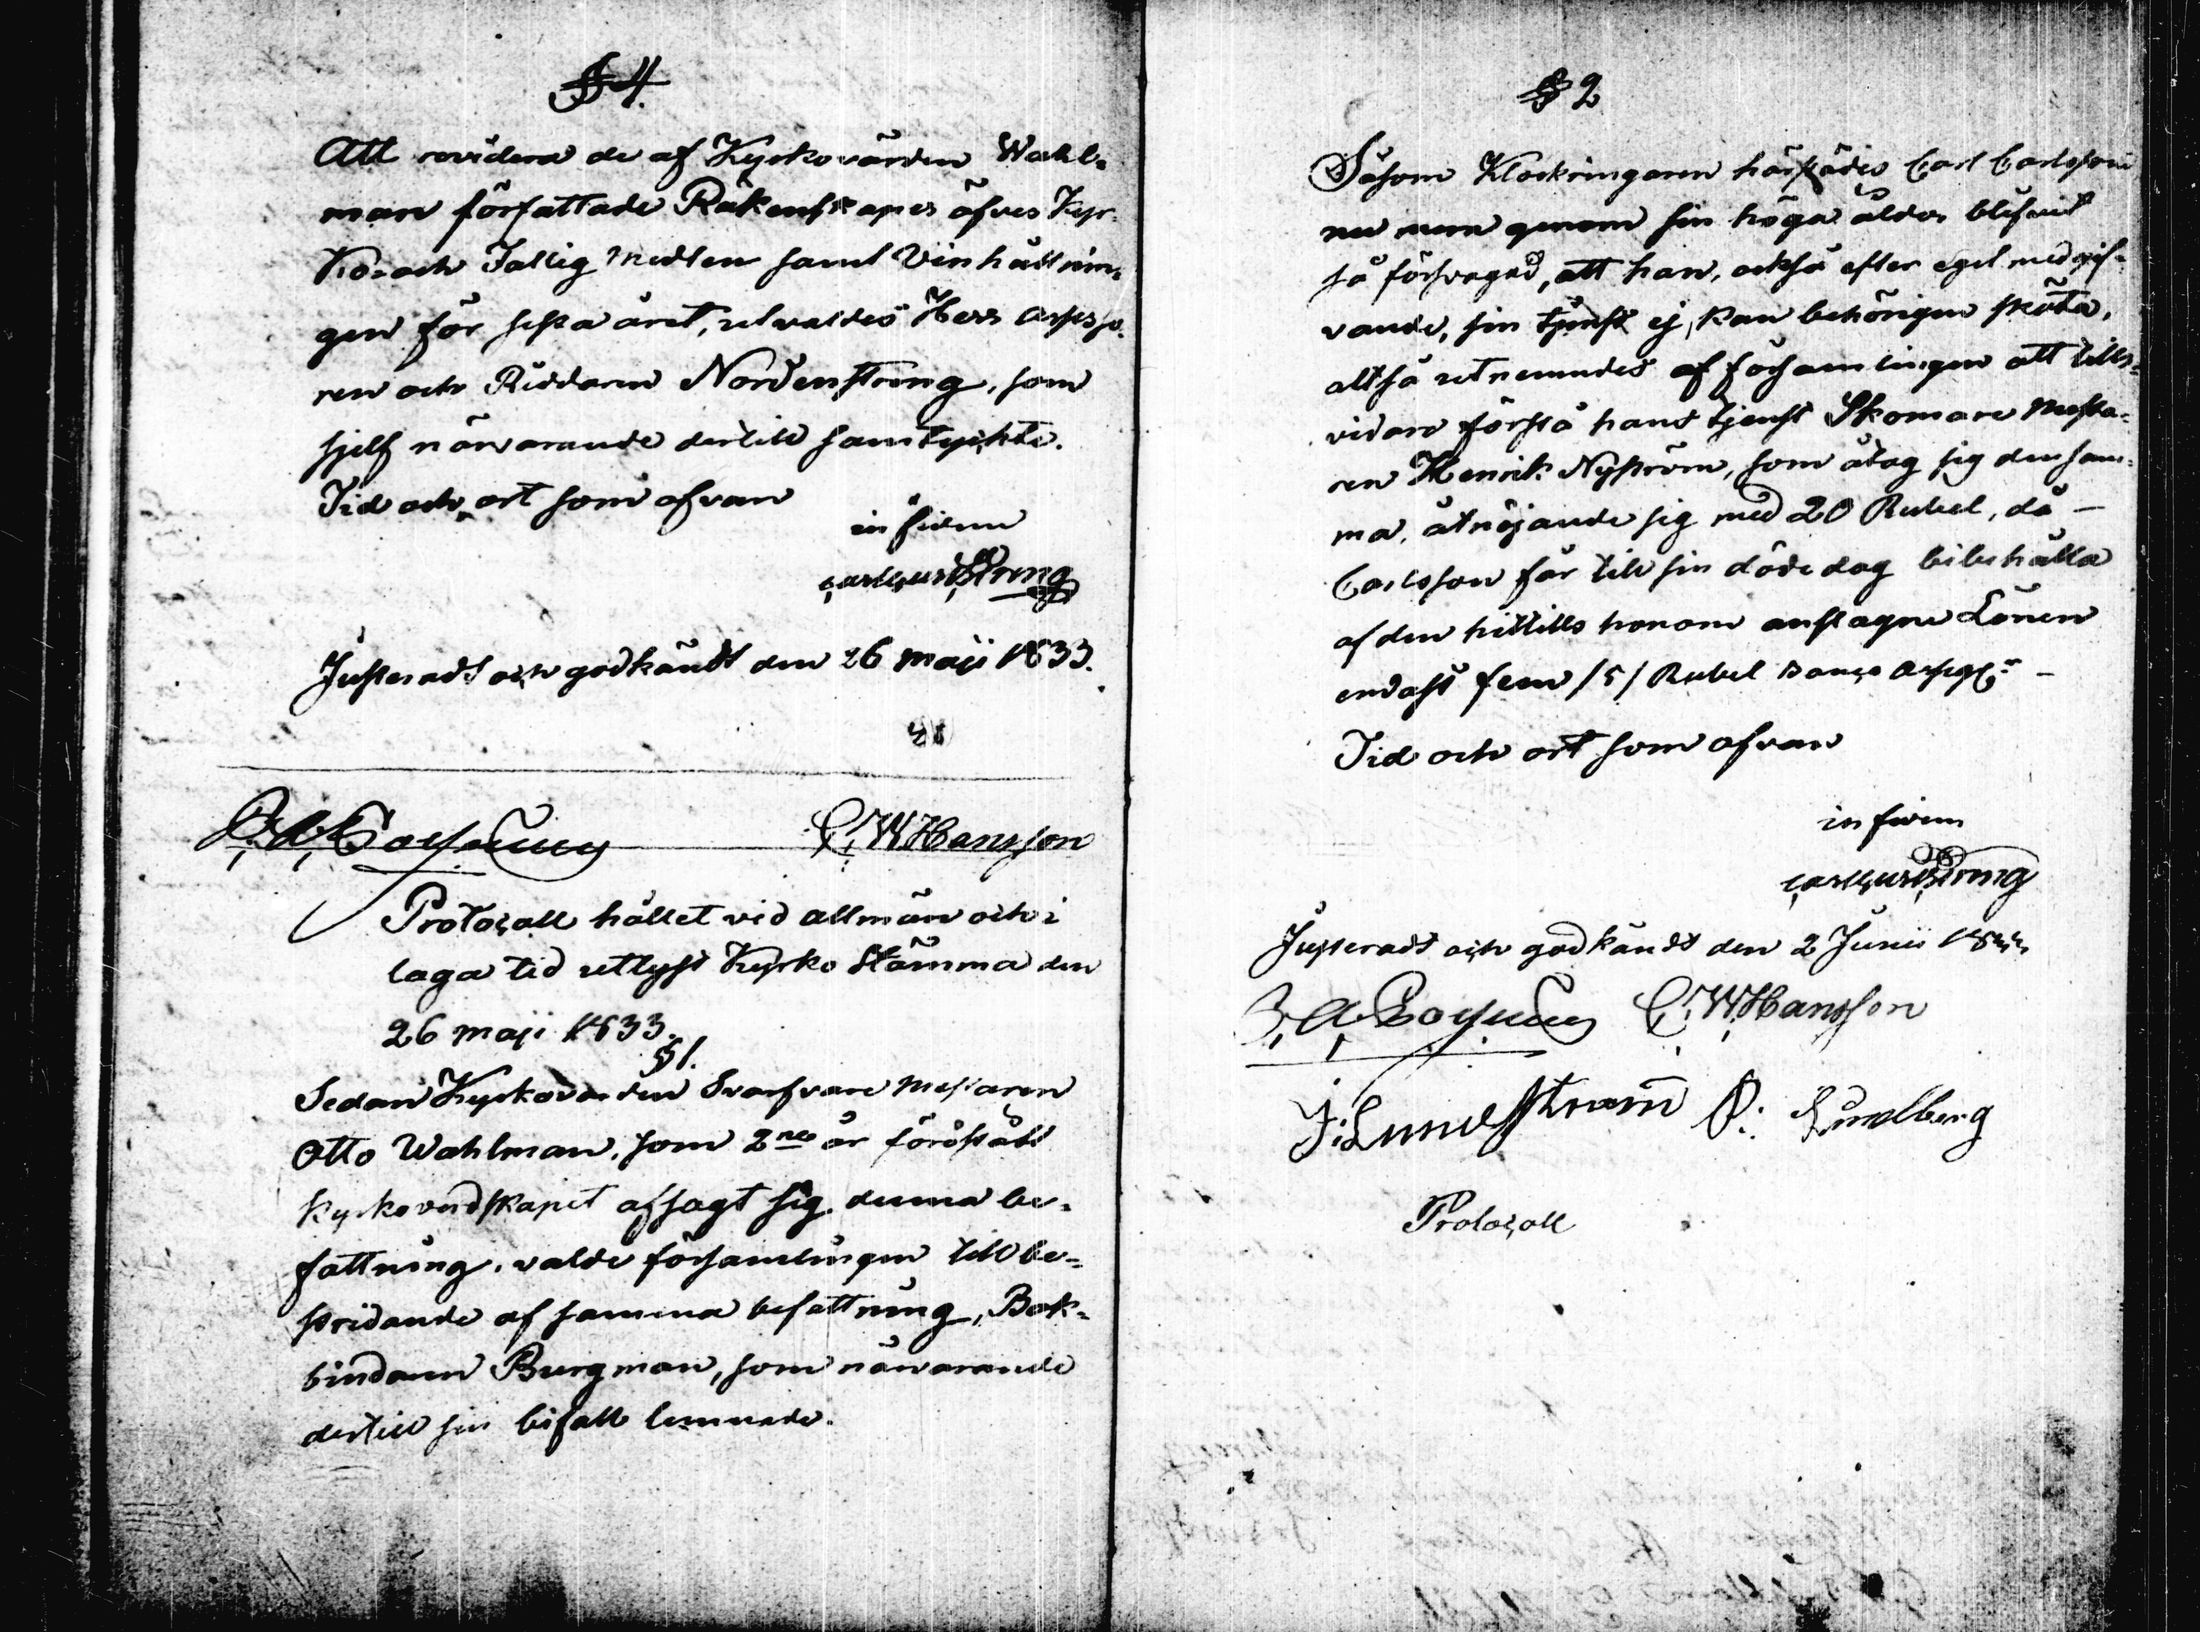 § 4.
Att revidera de af Kyrkovärden Wahl-
man författade Räkenskaper öfver Kyr-
ko- och Fattig Medlen samt Vinhållnin-
gen för sista året, utvaldes Herr Assesso-
ren och Riddaren Nordenstreng, som
sjelf närvarande dertill samtyckte.
Tid och ort som ofvan
in fidem
Justeradt och godkändt den 26 Maji 1833.
C. W. Hansson
Protocoll hållet vid allmän och i
laga tid utlyst Kyrko Stämma den
26 Maji 1833.
§ 1.
Sedan Kyrkovärden Svarfvare Mästaren
Otto Wahlman, som 2ne år förestått
kyrkovärdskapet afsagt sig denna be-
fattning, valde församlingen till be-
stridande af samma befattning, Bok-
bindaren Burgman, som närvarande
dertill sin bifall lemnade.
§ 2
Såsom Klockringaren härstädes Carl Carlsson
nu mera genom sin höga ålder blifvit
så försvagad, att han, också efter eget medgif-
vande, sin tjenst ej kan behörigen sköta,
altså utnemndes af församlingen att tills-
vidare förestå hans tjenst Skomare Mästa-
ren Henrik Nyström, som åtog sig densam-
ma, åtnöjande sig med 20 Rubel, då —
Carlsson får till sin döde dag bibehålla
af den hittills honom anslagne Lönen
endast fem /5/ Rubel Banco Assign: —
Tid och ort som ofvan
in fidem
Justeradt och godkändt den 2 Junii 1833
C. W. Hansson
J: Lundström P: Sundberg
Protocoll